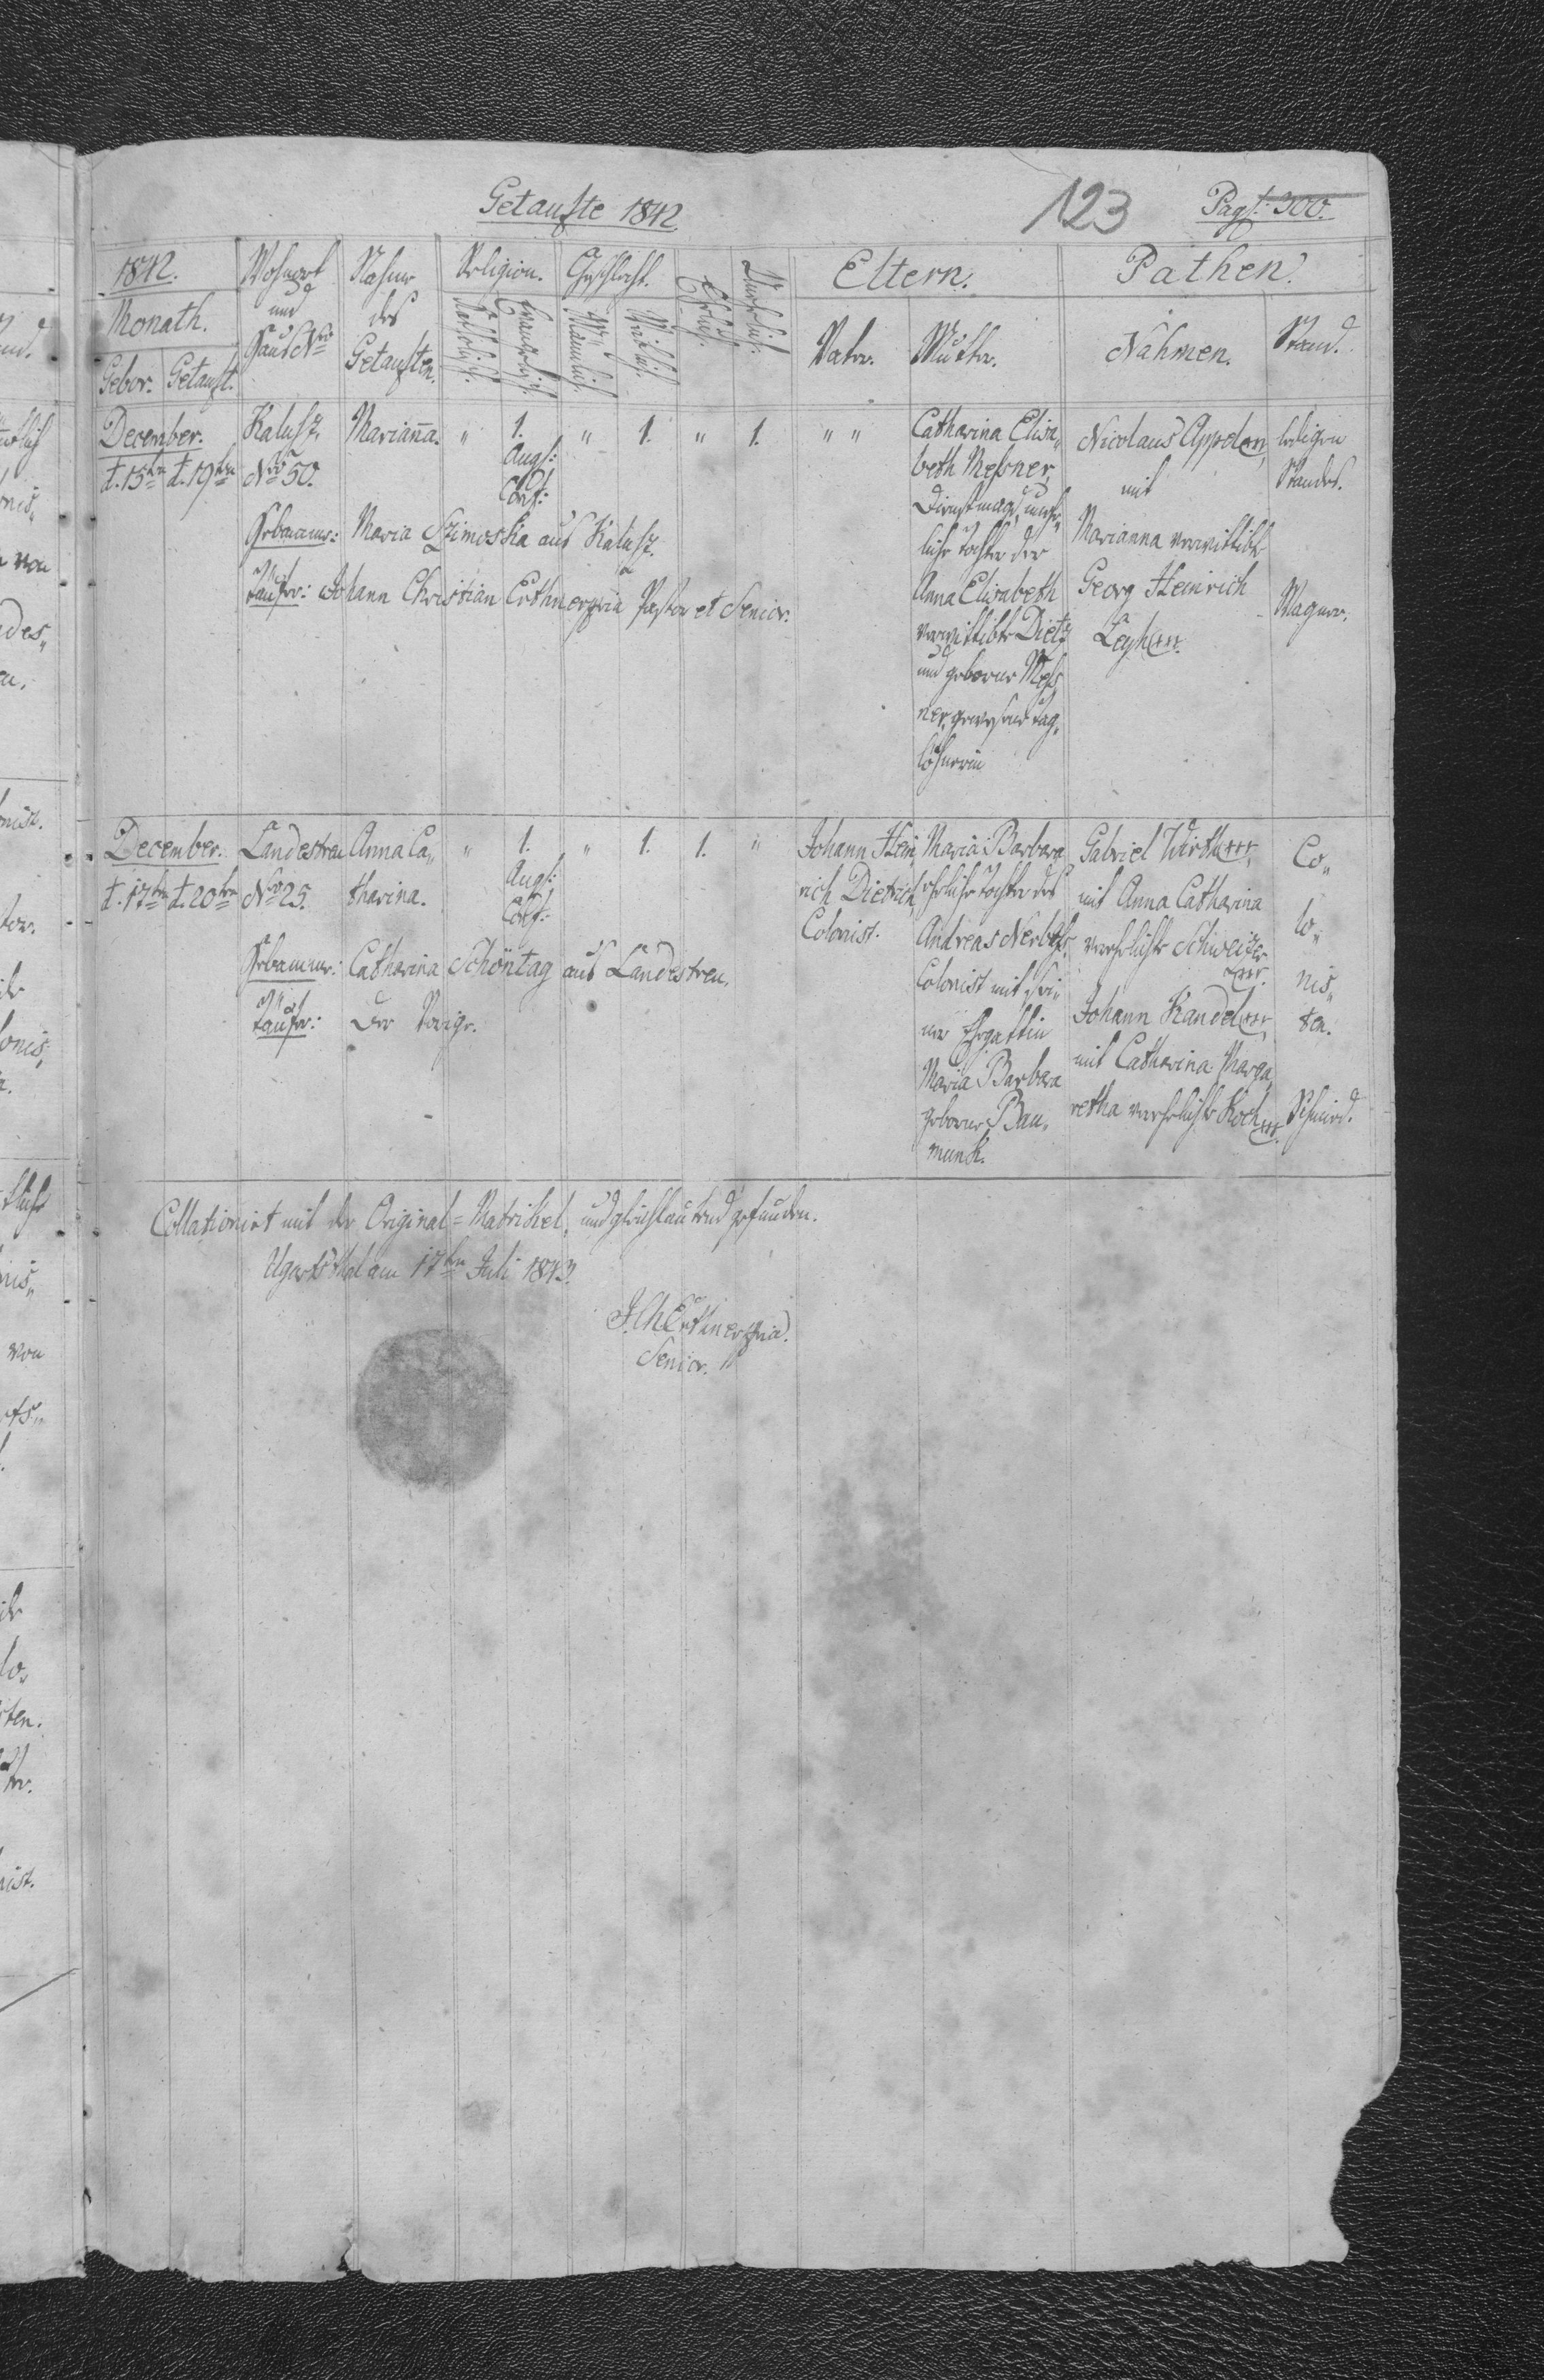 Getaufte 1842
123
Pag: 300.
1842.
Monath.
Gebor. Getauft.
Wohnort
und
Haus Nro
Nahme
des
Getauften.
Religion.
Katholisch.
Evangelisch.
Geschlecht.
Männlich.
Weiblich.
Ehelich.
Unehelich.
Eltern.
Vater.
Mutter.
Pathen.
Nahmen.
Stand.
December.
d. 15ten d. 19ten
Kalusz.
Nro 50.
Marianna.
"
1.
Augs:
Conf:
"
1.
"
1.
" "
Catharina Elisa„
beth Meßner,
Dienstmagd, unehe„
liche Tochter der
Anna Elisabeth
verwittibte Dietz
und geborne Meß„
ner, gewesene Tag„
löhnerin
Nicolaus Appel xxx,
mit
Marianna verwittibte
Georg Heinrich
Leyh xxx.
ledigen
Standes.
Wagner.
Hebamme: Maria Szimoska aus Kalusz.
Täufer: Johann Christian Erthner Pastor et Senior.
December.
d. 17ten d. 20ten
Landestreu
Nro 25.
Anna Ca„
tharina.
"
1.
Augs:
Conf:
"
1.
1.
"
Johann Hein„
rich Dietrich,
Colonist.
Maria Barbara
eheliche Tochter des
Andreas
Colonist mit sei„
ner Ehegattin
Maria Barbara
geborne Bau„
munk.
Gabriel Wirth xxx,
mit Anna Catharina
verehelichte Schweizer
xxx.
Johann Kandel xxx,
mit Catharina Marga„
retha verehelichte Koch xxx.
Co„
lo„
nis„
ten.
Schmied.
Hebamme: Catharina Schöntag aus Landestreu.
Täufer: Der Vorige.
Collationirt mit der Original=Matrikel, und gleichlautend gefunden.
Ugartsthal am 17ten Juli 1843.
J. Ch. Erthner
Senior.